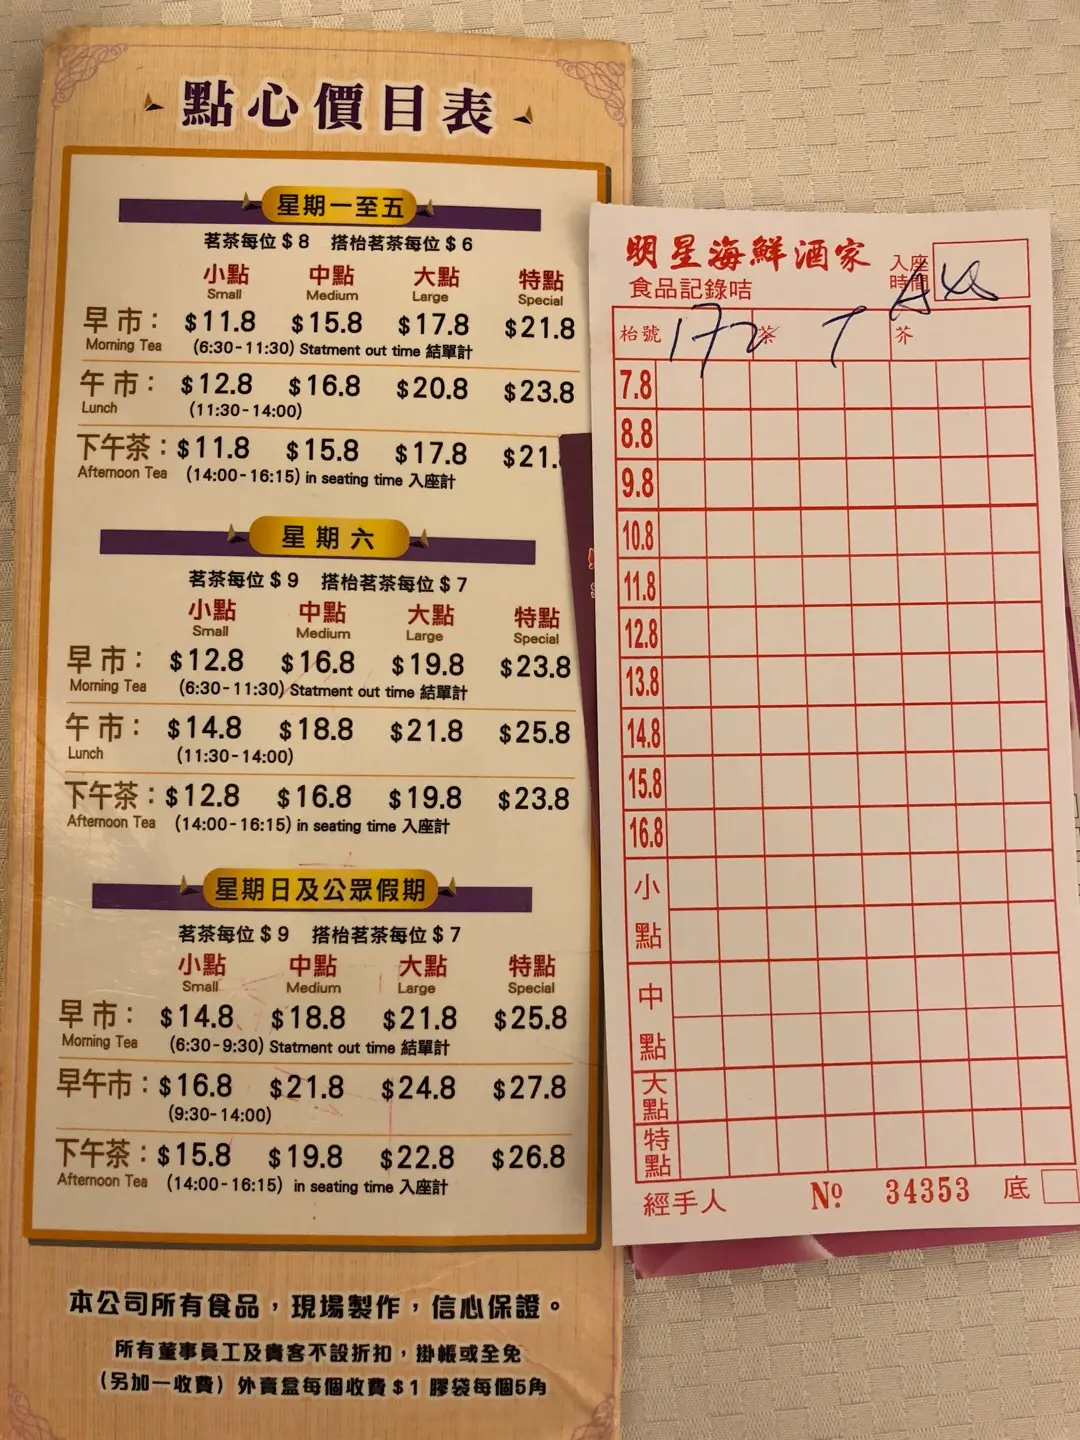 點心價目表
星期一至五
茗茶每位 $ 8 搭枱茗茶每位 $ 6
小點 中點 大點 特點
Small Medium Large Special
早 市： $11.8 $15.8 $17.8 $21.8
Morning Tea (6:30-11:30) Statment out time 結單計
午 市： $12.8 $16.8 $20.8 $23.8
Lunch (11:30-14:00)
下午茶： $11.8 $15.8 $17.8 $21.
Afternoon Tea (14:00-16:15) in seating time 入座計
星期六
茗茶每位 $ 9 搭枱茗茶每位 $ 7
小點 中點 大點 特點
Small Medium Large Special
早 市： $12.8 $16.8 $19.8 $23.8
Morning Tea (6:30-11:30) Statment out time 結單計
午 市： $14.8 $18.8 $21.8 $25.8
Lunch (11:30-14:00)
下午茶： $12.8 $16.8 $19.8 $23.8
Afternoon Tea (14:00-16:15) in seating time 入座計
星期日及公眾假期
茗茶每位 $ 9 搭枱茗茶每位 $ 7
小點 中點 大點 特點
Small Medium Large Special
早 市： $14.8 $18.8 $21.8 $25.8
Morning Tea (6:30-9:30) Statment out time 結單計
早午市： $16.8 $21.8 $24.8 $27.8
(9:30-14:00)
下午茶： $15.8 $19.8 $22.8 $26.8
Afternoon Tea (14:00-16:15) in seating time 入座計
本公司所有食品，現場製作，信心保證。
所有董事員工及貴客不設折扣，掛帳或全免
(另加一收費) 外賣盒每個收費 $ 1 膠袋每個5角
明星海鮮酒家
食品記錄咭
入座
時間
枱號 172 茶 芥
7.8
8.8
9.8
10.8
11.8
12.8
13.8
14.8
15.8
16.8
小點
中點
大點
特點
經手人 Nº 34353 底